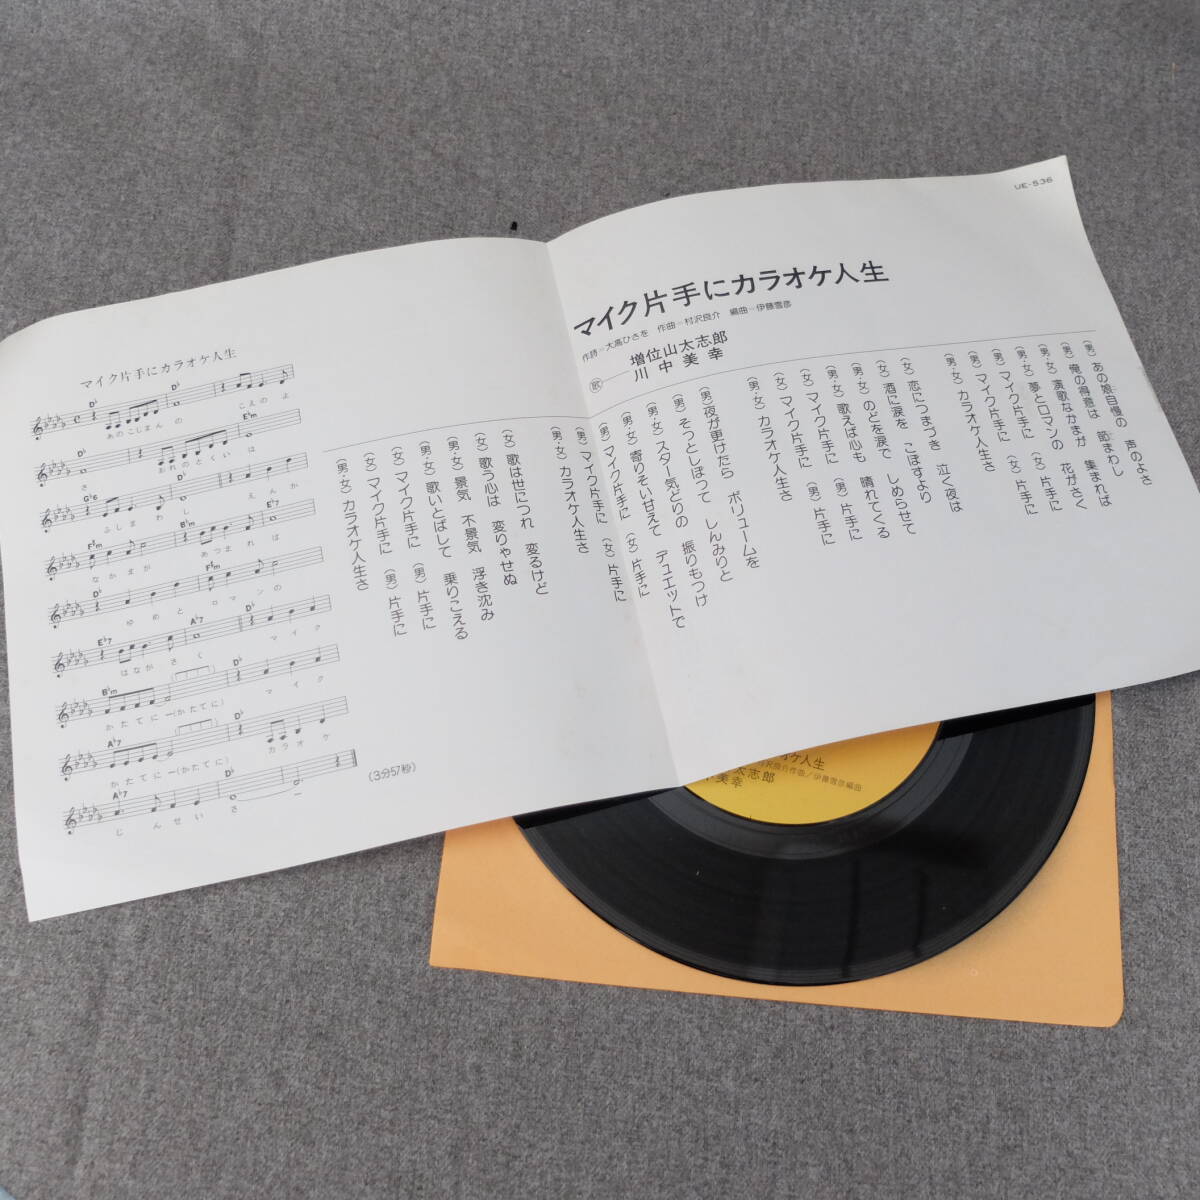 UE-536
マイク片手にカラオケ人生
作詩=大高ひさを 作曲=村沢良介 編曲=伊藤雪彦
歌 増位山太志郎
川中美幸
(男) あの娘自慢の 声のよさ
(男) 俺の得意は 節まわし
(男) 演歌なかまが 集まれば
(男・女) 夢とロマンの 花がさく
(男) マイク片手に (女) 片手に
(男) マイク片手に (女) 片手に
(男・女) カラオケ人生さ
(女) 恋につまづき 泣く夜は
(女) 酒に涙を こぼすより
(男) のどを涙で しめらせて
(男・女) 歌えば心も 晴れてくる
(女) マイク片手に (男) 片手に
(女) マイク片手に (男) 片手に
(男・女) カラオケ人生さ
(男) 夜が更けたら ボリュームを
(男) そっとしぼって しんみりと
(女) スター気どりの 振りもつけ
(男・女) 寄りそい甘えて デュエットで
(男) マイク片手に (女) 片手に
(男) マイク片手に (女) 片手に
(男・女) カラオケ人生さ
(女) 歌は世につれ 変るけど
(女) 歌う心は 変りやせぬ
(男・女) 景気 不景気 浮き沈み
(男・女) 歌いとばして 乗りこえる
(女) マイク片手に (男) 片手に
(女) マイク片手に (男) 片手に
(男・女) カラオケ人生さ
マイク片手にカラオケ人生
D♭
あのこじまんの こえのよ
D♭ E♭m
さ おれのとくいは
G♭6 D♭
ふしまわし えんか
F♯m B♭m E♭7
なかまが あつまれは
D♭ F♯m
ゆめとロマンの
E♭7 A♭7 D♭
はながさく マイク
B♭m D♭
かたてにー(かたてに) マイク
A♭7 D♭
かたてにー(かたてに) カラオケ
A♭7 D♭
じんせいさ ー
(3分57秒)
ケ人生
村沢良介作曲/伊藤雪彦編曲
太志郎
中美幸